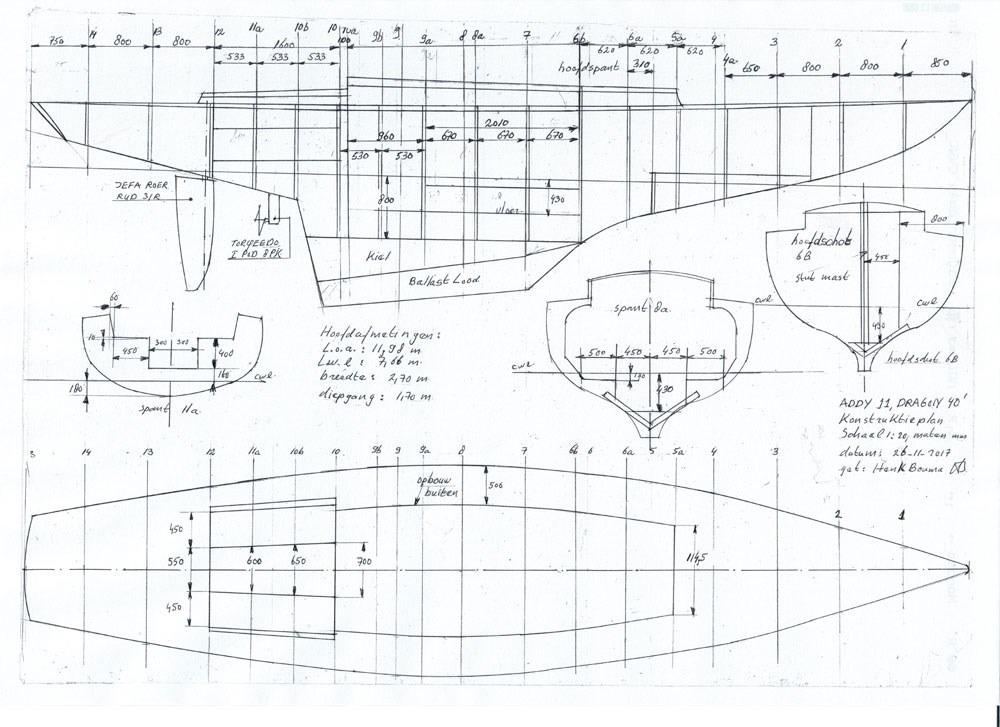 14 13 12 11a 10b 10 10a 9b 9 9a 8 8a 7 6b 6a 5a 4 3 2 1
750 800 800 1600 620 620 620 4a 650 800 800 850
533 533 533 hoofdspant 310
2010
960 670 670 670
530 530
800 vloer 430
JEFA ROER
RUD S/R
TORQEEDO
Kiel
Ballast Lood
800
hoofdschot
6B 450
stut mast
cwl
430
hoofdschot 6B
60
10 300 300 400
450
180 cwl
spant 11a
Hoofdafmetingen:
L.o.a.: 11,98 m
Lwl: 7,66 m
breedte: 2,70 m
diepgang: 1,70 m
spant 8a cwl
500 450 450 500
cwl 430
ADDY 11, DRAGOIY 40'
Konstruktieplan
Schaal 1:20, maten mm
datum: 26-11-2017
get: Henk Bouma
14 13 12 11a 10b 10 9b 9 9a 8 7 6b 6 6a 5 5a 4 3
opbouw
buiten 506
2 1
450
550 600 650 700
450